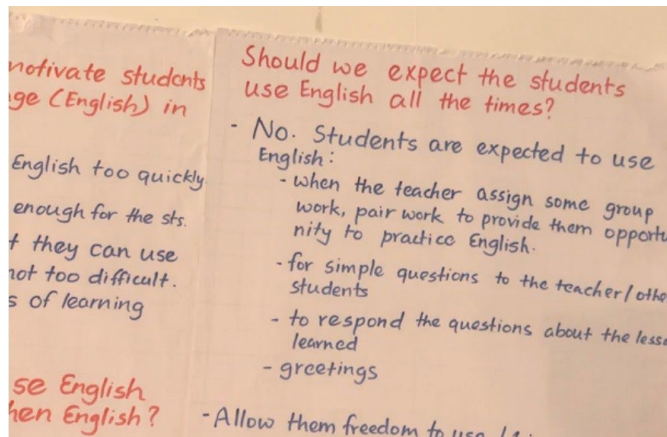 motivate students
ge (English) in
English too quickly
enough for the sts.
they can use
not too difficult.
s of learning
se English
hen English?
Should we expect the students
use English all the times?
- No. Students are expected to use
English:
- when the teacher assign some group
work, pair work to provide them opportu
nity to practice English.
- for simple questions to the teacher/othe
students
- to respond the questions about the less
learned
- greetings
- Allow them freedom to use